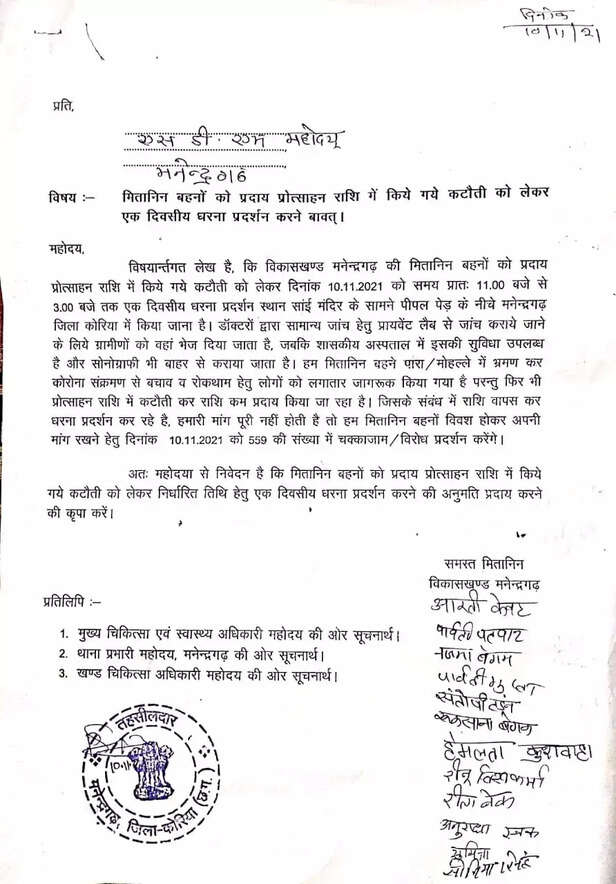 दिनांक
10/11/21
प्रति,
एस डी. एम महोदय
मनेन्द्रगढ
विषय :– मितानिन बहनों को प्रदाय प्रोत्साहन राशि में किये गये कटौती को लेकर
एक दिवसीय धरना प्रदर्शन करने बावत्।
महोदय,
विषयार्न्तगत लेख है, कि विकासखण्ड मनेन्द्रगढ़ की मितानिन बहनों को प्रदाय
प्रोत्साहन राशि में किये गये कटौती को लेकर दिनांक 10.11.2021 को समय प्रातः 11.00 बजे से
3.00 बजे तक एक दिवसीय धरना प्रदर्शन स्थान सांई मंदिर के सामने पीपल पेड़ के नीचे मनेन्द्रगढ़
जिला कोरिया में किया जाना है। डॉक्टरों द्वारा सामान्य जांच हेतु प्रायवेंट लैब से जांच कराये जाने
के लिये ग्रामीणों को वहां भेज दिया जाता है, जबकि शासकीय अस्पताल में इसकी सुविधा उपलब्ध
है और सोनोग्राफी भी बाहर से कराया जाता है। हम मितानिन बहने पारा/मोहल्ले में भ्रमण कर
कोरोना संक्रमण से बचाव व रोकथाम हेतु लोगों को लगातार जागरूक किया गया है परन्तु फिर भी
प्रोत्साहन राशि में कटौती कर राशि कम प्रदाय किया जा रहा है। जिसके संबंध में राशि वापस कर
धरना प्रदर्शन कर रहे है, हमारी मांग पूरी नहीं होती है तो हम मितानिन बहनों विवश होकर अपनी
मांग रखने हेतु दिनांक 10.11.2021 को 559 की संख्या में चक्काजाम/विरोध प्रदर्शन करेंगे।
अतः महोदया से निवेदन है कि मितानिन बहनों को प्रदाय प्रोत्साहन राशि में किये
गये कटौती को लेकर निर्धारित तिथि हेतु एक दिवसीय धरना प्रदर्शन करने की अनुमति प्रदाय करने
की कृपा करें।
समस्त मितानिन
विकासखण्ड मनेन्द्रगढ़
आरती केवट
पार्वती
नजमा बेगम
पार्वती गुप्ता
संतोषी
रूकसाना बेगम
हेमलता कुशवाहा
विश्वकर्मा
रीता बेक
अनुराधा
सुमित्रा
प्रतिलिपि :–
1. मुख्य चिकित्सा एवं स्वास्थ्य अधिकारी महोदय की ओर सूचनार्थ।
2. थाना प्रभारी महोदय, मनेन्द्रगढ़ की ओर सूचनार्थ।
3. खण्ड चिकित्सा अधिकारी महोदय की ओर सूचनार्थ।
तहसीलदार
मनेन्द्रगढ़, जिला-कोरिया (छ.ग.)